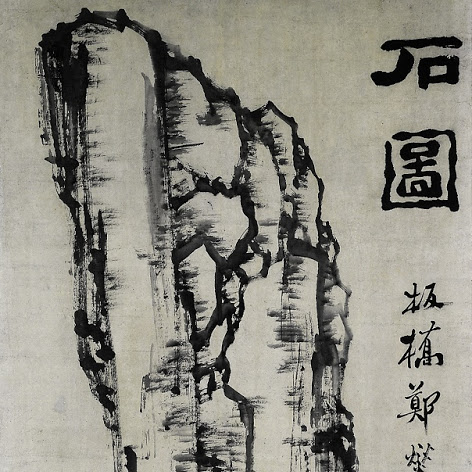 石圖
板橋鄭燮